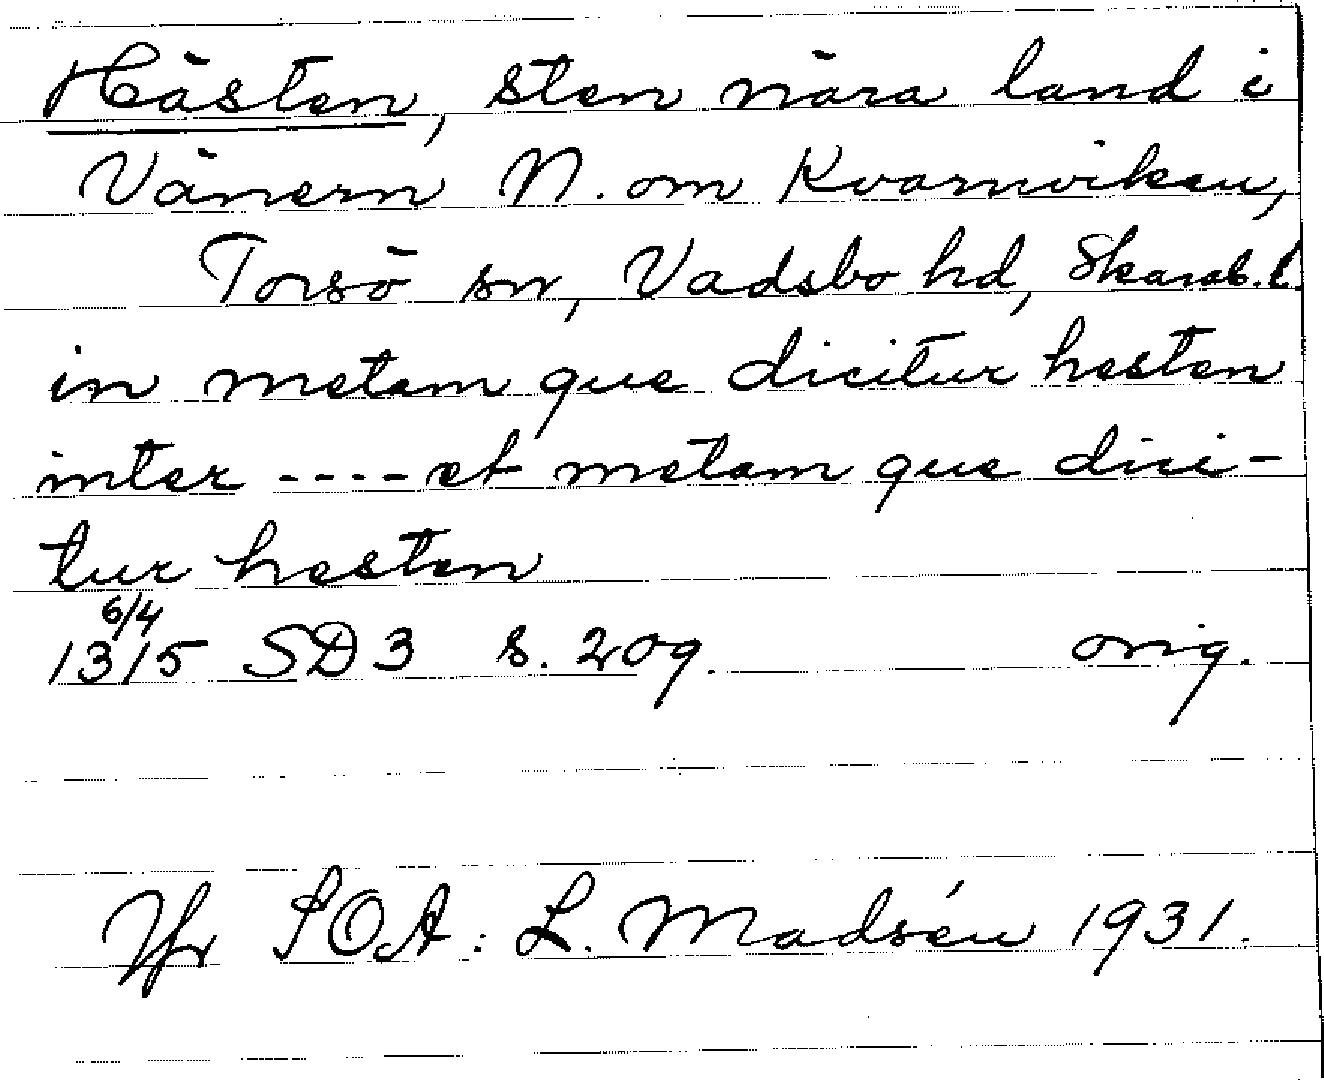 Hästen, sten nära land i
Vänern N. om Kvarnviken,
Torsö sn, Vadsbo hd, Skarab. l.
in metam que dicitur hesten
inter ---- et metam que dici-
tur hesten
6/4
1315 SD 3 s. 209. orig.
Jfr SOA: L. Madsén 1931.